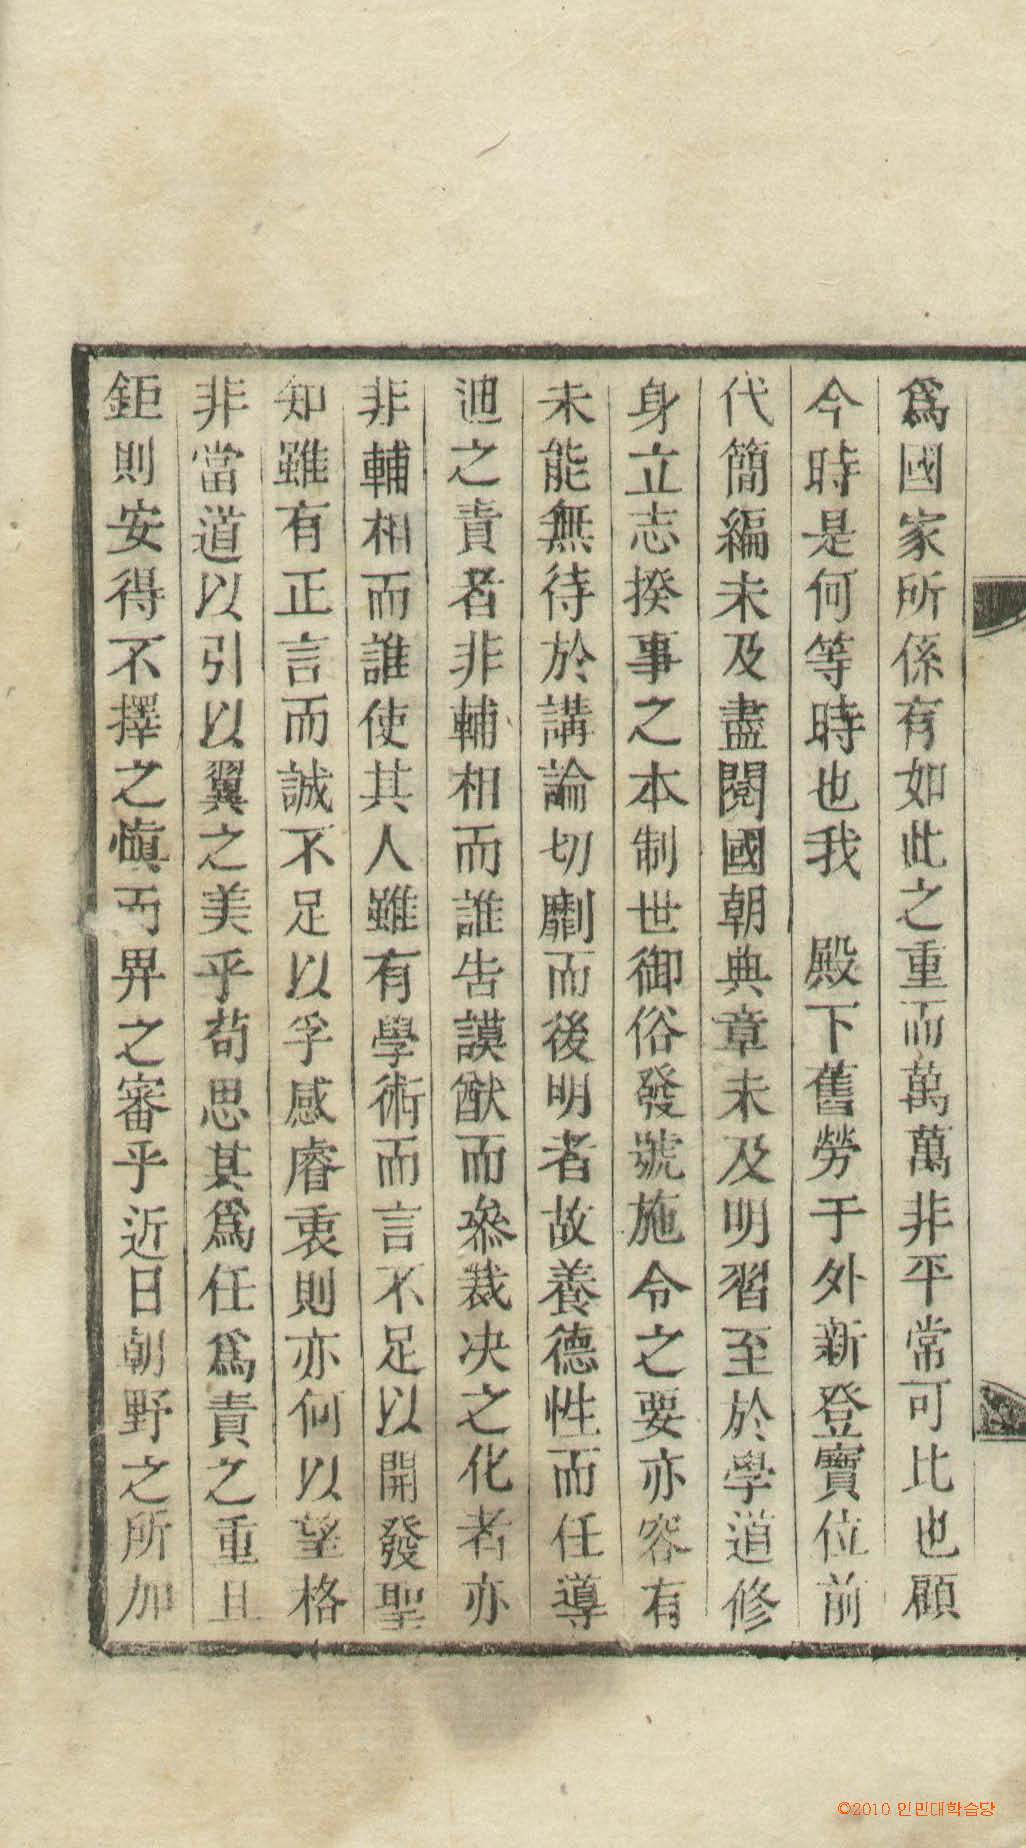 爲國家所係有如此之重而萬萬非平常可比也顧
今時是何等時也我　殿下舊勞于外新登寶位前
代簡編未及盡閱國朝典章未及明習至於學道修
身立志揆事之本制世御俗發號施令之要亦容有
未能無待於講論切劘而後明者故養德性而任導
迪之責者非輔相而誰告謨猷而叅裁决之化者亦
非輔相而誰使其人雖有學術而言不足以開發聖
知雖有正言而誠不足以孚感睿衷則亦何以望格
非當道以引以翼之美乎苟思其爲任爲責之重且
鉅則安得不擇之愼而畀之審乎近日朝野之所加
©2010 인민대학습당